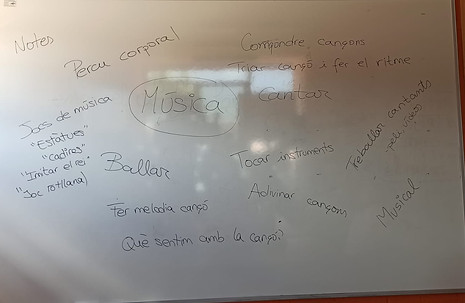 Notes
Percu corporal
Compondre cançons
Triar cançó i fer el ritme
Música
Cantar
Jocs de música
"Estàtues"
"Cadires"
"Imitar el rei"
"Joc rotllana)
Ballar
Tocar instruments
Treballar cantants
Adivinar cançons
Musical
Fer melodia cançó
Què sentim amb la cançó?